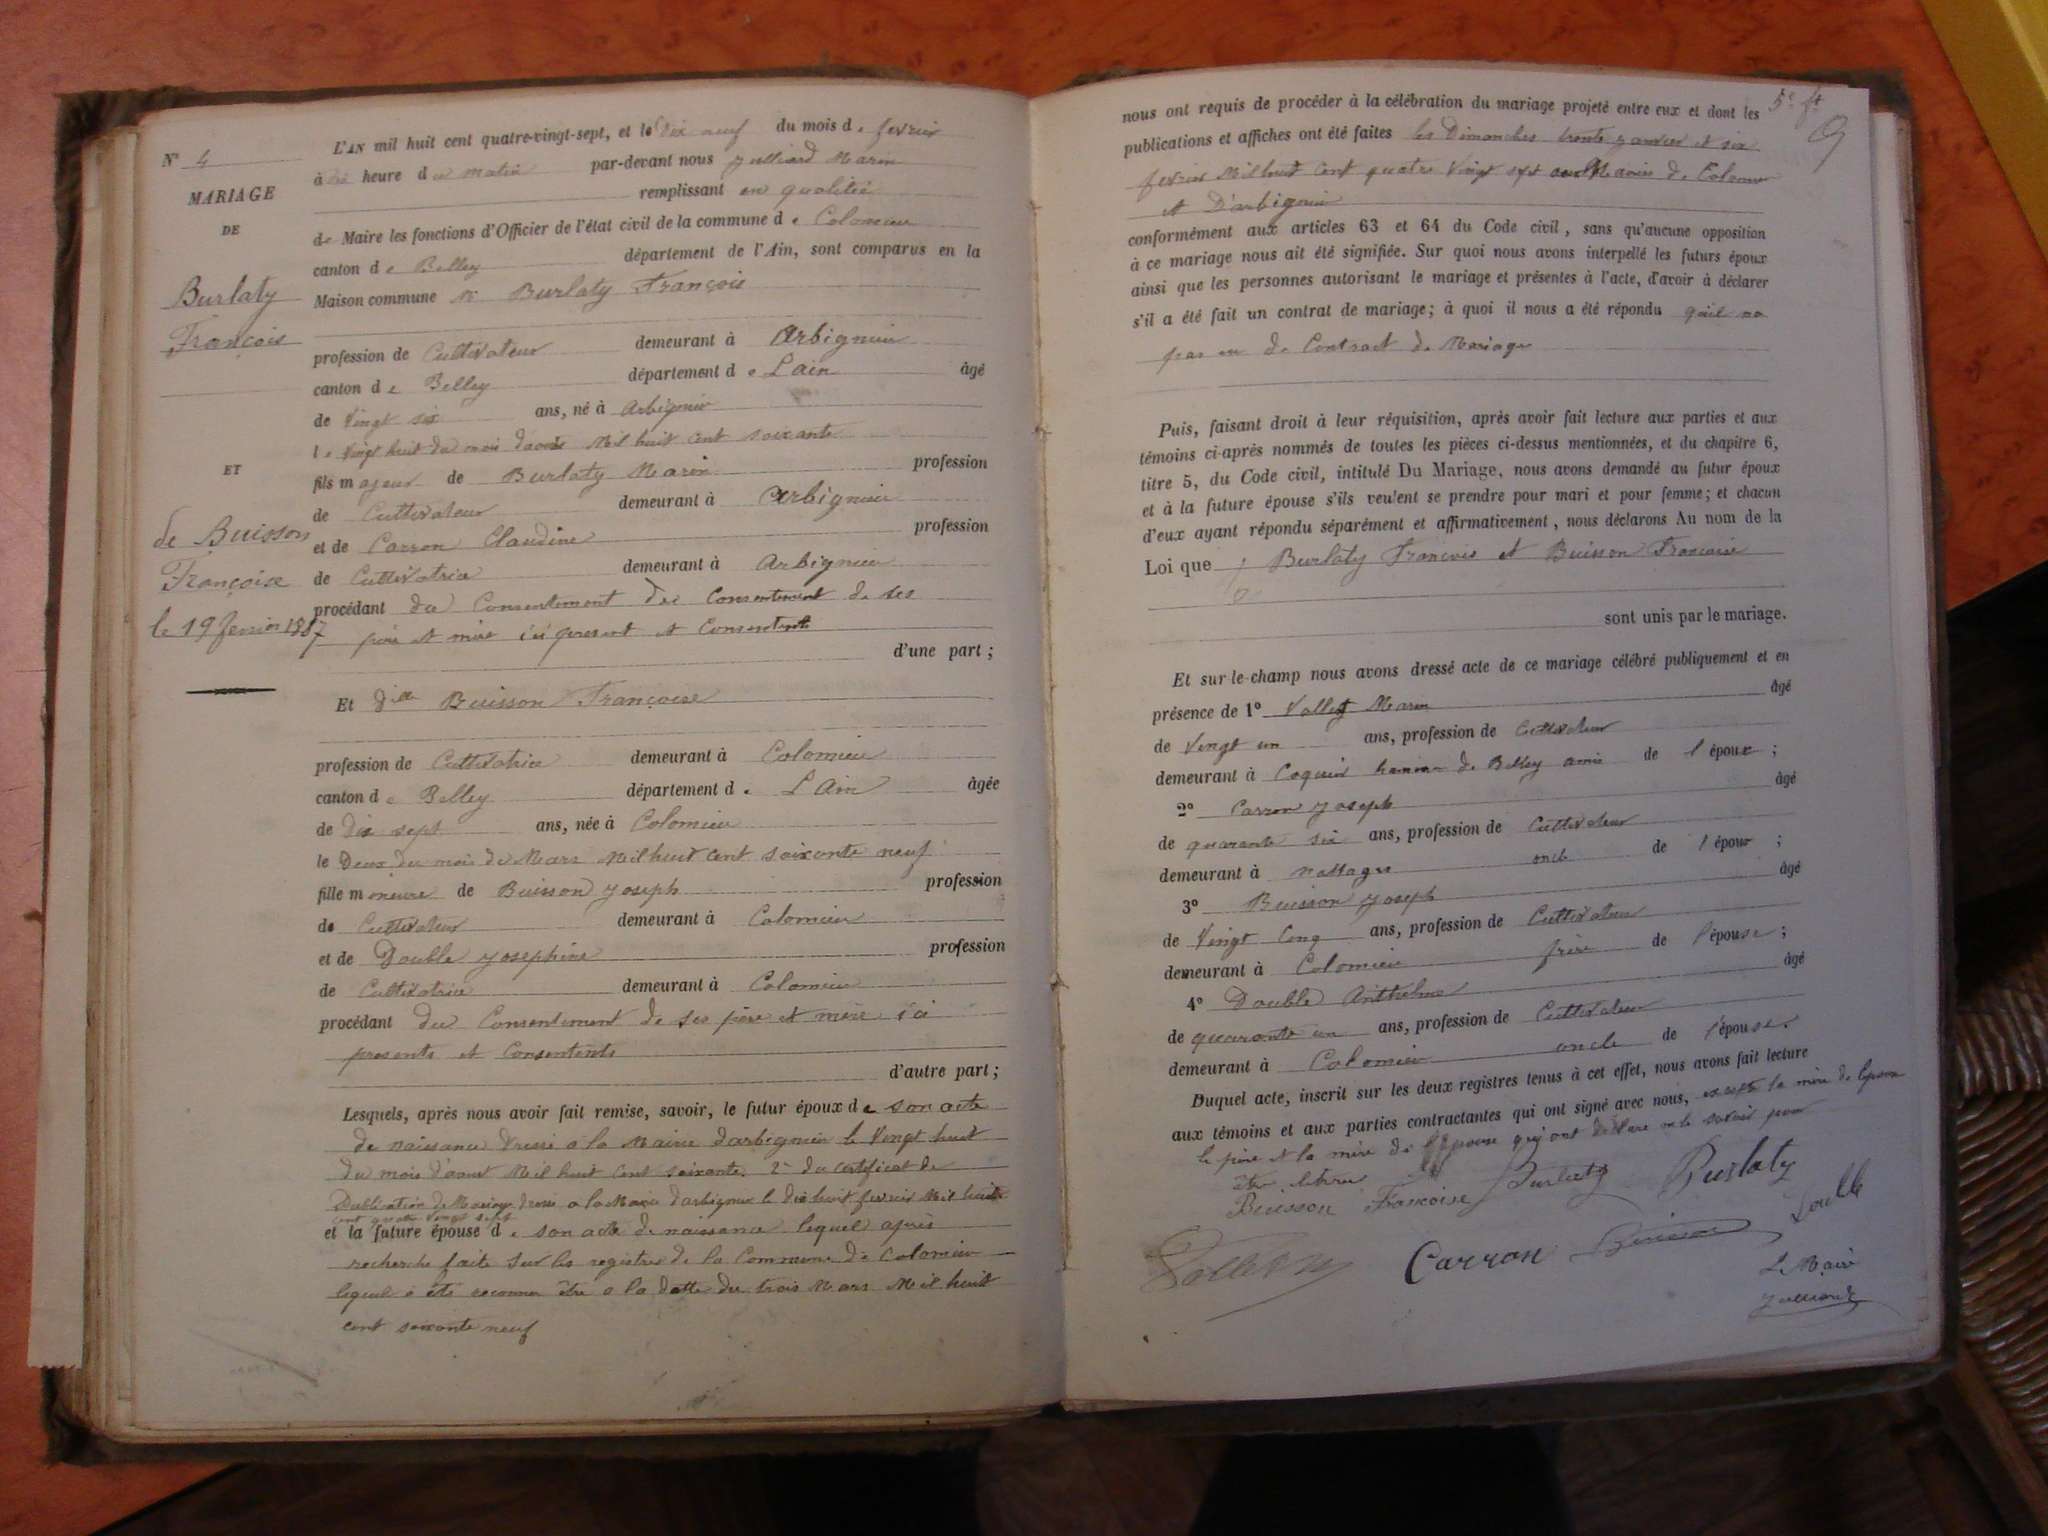 N° 4
MARIAGE
DE
Burlaty
François
ET
de Buisson
Françoise
le 19 fevrier 1887
L'AN mil huit cent quatre-vingt-sept, et le Dix neuf du mois de fevrier
à heure du matin par-devant nous Julliard Marin
remplissant en qualitée
de Maire les fonctions d'Officier de l'état civil de la commune de Colomieu
canton de Belley département de l'Ain, sont comparus en la
Maison commune Burlaty François
profession de Cultivateur demeurant à Arbignieu
canton de Belley département de L'ain âgé
de Vingt six ans, né à Arbignieu
le Vingt huit du mois Mil huit cent soixante
fils majeur de Burlaty Marin profession
de Cultivateur demeurant à Arbignieu
et de Carron Claudine profession
de Cultivatrice demeurant à Arbignieu
procédant du Consentement de Consentement de ses
père et mère ici present et Consentent
d'une part ;
Et dlle Buisson Françoise
profession de Cultivatrice demeurant à Colomieu
canton de Belley département de L'Ain âgée
de Dix sept ans, née à Colomieu
le Deux du mois de Mars Mil huit Cent soixante neuf
fille mineure de Buisson Joseph profession
de Cultivateur demeurant à Colomieu
et de Double Josephine profession
de Cultivatrice demeurant à Colomieu
procédant du Consentement de ses père et mère ici
presents et Consentents
d'autre part ;
Lesquels, après nous avoir fait remise, savoir, le futur époux de son acte
de naissance Dressé a la Mairie darbignieu le Vingt huit
du mois d'aout Mil huit Cent soixante. 2° du certificat de
Publication de Mariage dressé a la Mairie darbignieu le dix huit fevrier Mil huit
cent quatre vingt sept
et la future épouse de son acte de naissance lequel après
recherche faite sur les registres de la Commune de Colomieu
lequel a été reconnu être a la datte du trois Mars Mil huit
cent soixante neuf
5e ft
9
nous ont requis de procéder à la célébration du mariage projeté entre eux et dont les
publications et affiches ont été faites les Dimanches trente janvier et six
fevrier Mil huit Cent quatre Vingt sept Mairies de Colomieu
et D'arbignieu
conformément aux articles 63 et 64 du Code civil, sans qu'aucune opposition
à ce mariage nous ait été signifiée. Sur quoi nous avons interpellé les futurs époux
ainsi que les personnes autorisant le mariage et présentes à l'acte, d'avoir à déclarer
s'il a été fait un contrat de mariage; à quoi il nous a été répondu quil na
pas eu de Contract de Mariage
Puis, faisant droit à leur réquisition, après avoir fait lecture aux parties et aux
témoins ci-après nommés de toutes les pièces ci-dessus mentionnées, et du chapitre 6,
titre 5, du Code civil, intitulé Du Mariage, nous avons demandé au futur époux
et à la future épouse s'ils veulent se prendre pour mari et pour femme; et chacun
d'eux ayant répondu séparément et affirmativement, nous déclarons Au nom de la
Loi que Burlaty Francois et Buisson Francoise
sont unis par le mariage.
Et sur-le-champ nous avons dressé acte de ce mariage célébré publiquement et en
présence de 1° Vallet Marin âgé
de Vingt un ans, profession de Cultivateur
demeurant à Coquin hameau de Belley amis de l'époux ;
2° Carron Joseph âgé
de quarante six ans, profession de Cultivateur
demeurant à Nattages oncle de l'époux ;
3° Buisson Joseph âgé
de Vingt Cinq ans, profession de Cultivateur
demeurant à Colomieu frère de l'épouse ;
4° Double Anthelme âgé
de quarante un ans, profession de Cultivateur
demeurant à Colomieu oncle de l'épouse.
Duquel acte, inscrit sur les deux registres tenus à cet effet, nous avons fait lecture
aux témoins et aux parties contractantes qui ont signé avec nous, excepté la mère de lepoux
le père et la mère de l'Epouse qui ont déclare ne le savoir pour
être
Buisson Francoise Burlaty Burlaty
Double
Carron Buisson
Le Maire
Julliard